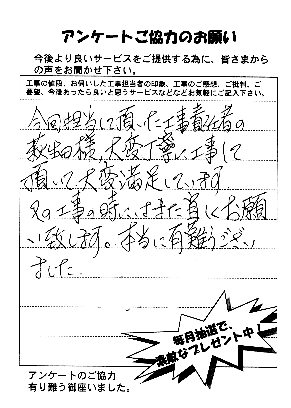 アンケートご協力のお願い
今後より良いサービスをご提供する為に、皆さまから
の声をお聞かせ下さい。
工事の値段、お伺いした工事担当者の印象、工事のご感想、ご批判、ご
要望、今後あったら良いと思うサービスなどなどお気軽にご記入下さい。
今回担当して頂いた工事責任者の
薮出様、大変丁寧に工事して
頂いて大変満足しています
又の工事の時にはまた宜しくお願
い致します。本当に有難うござい
ました
毎月抽選で、
素敵なプレゼント中!
アンケートのご協力
有り難う御座いました。